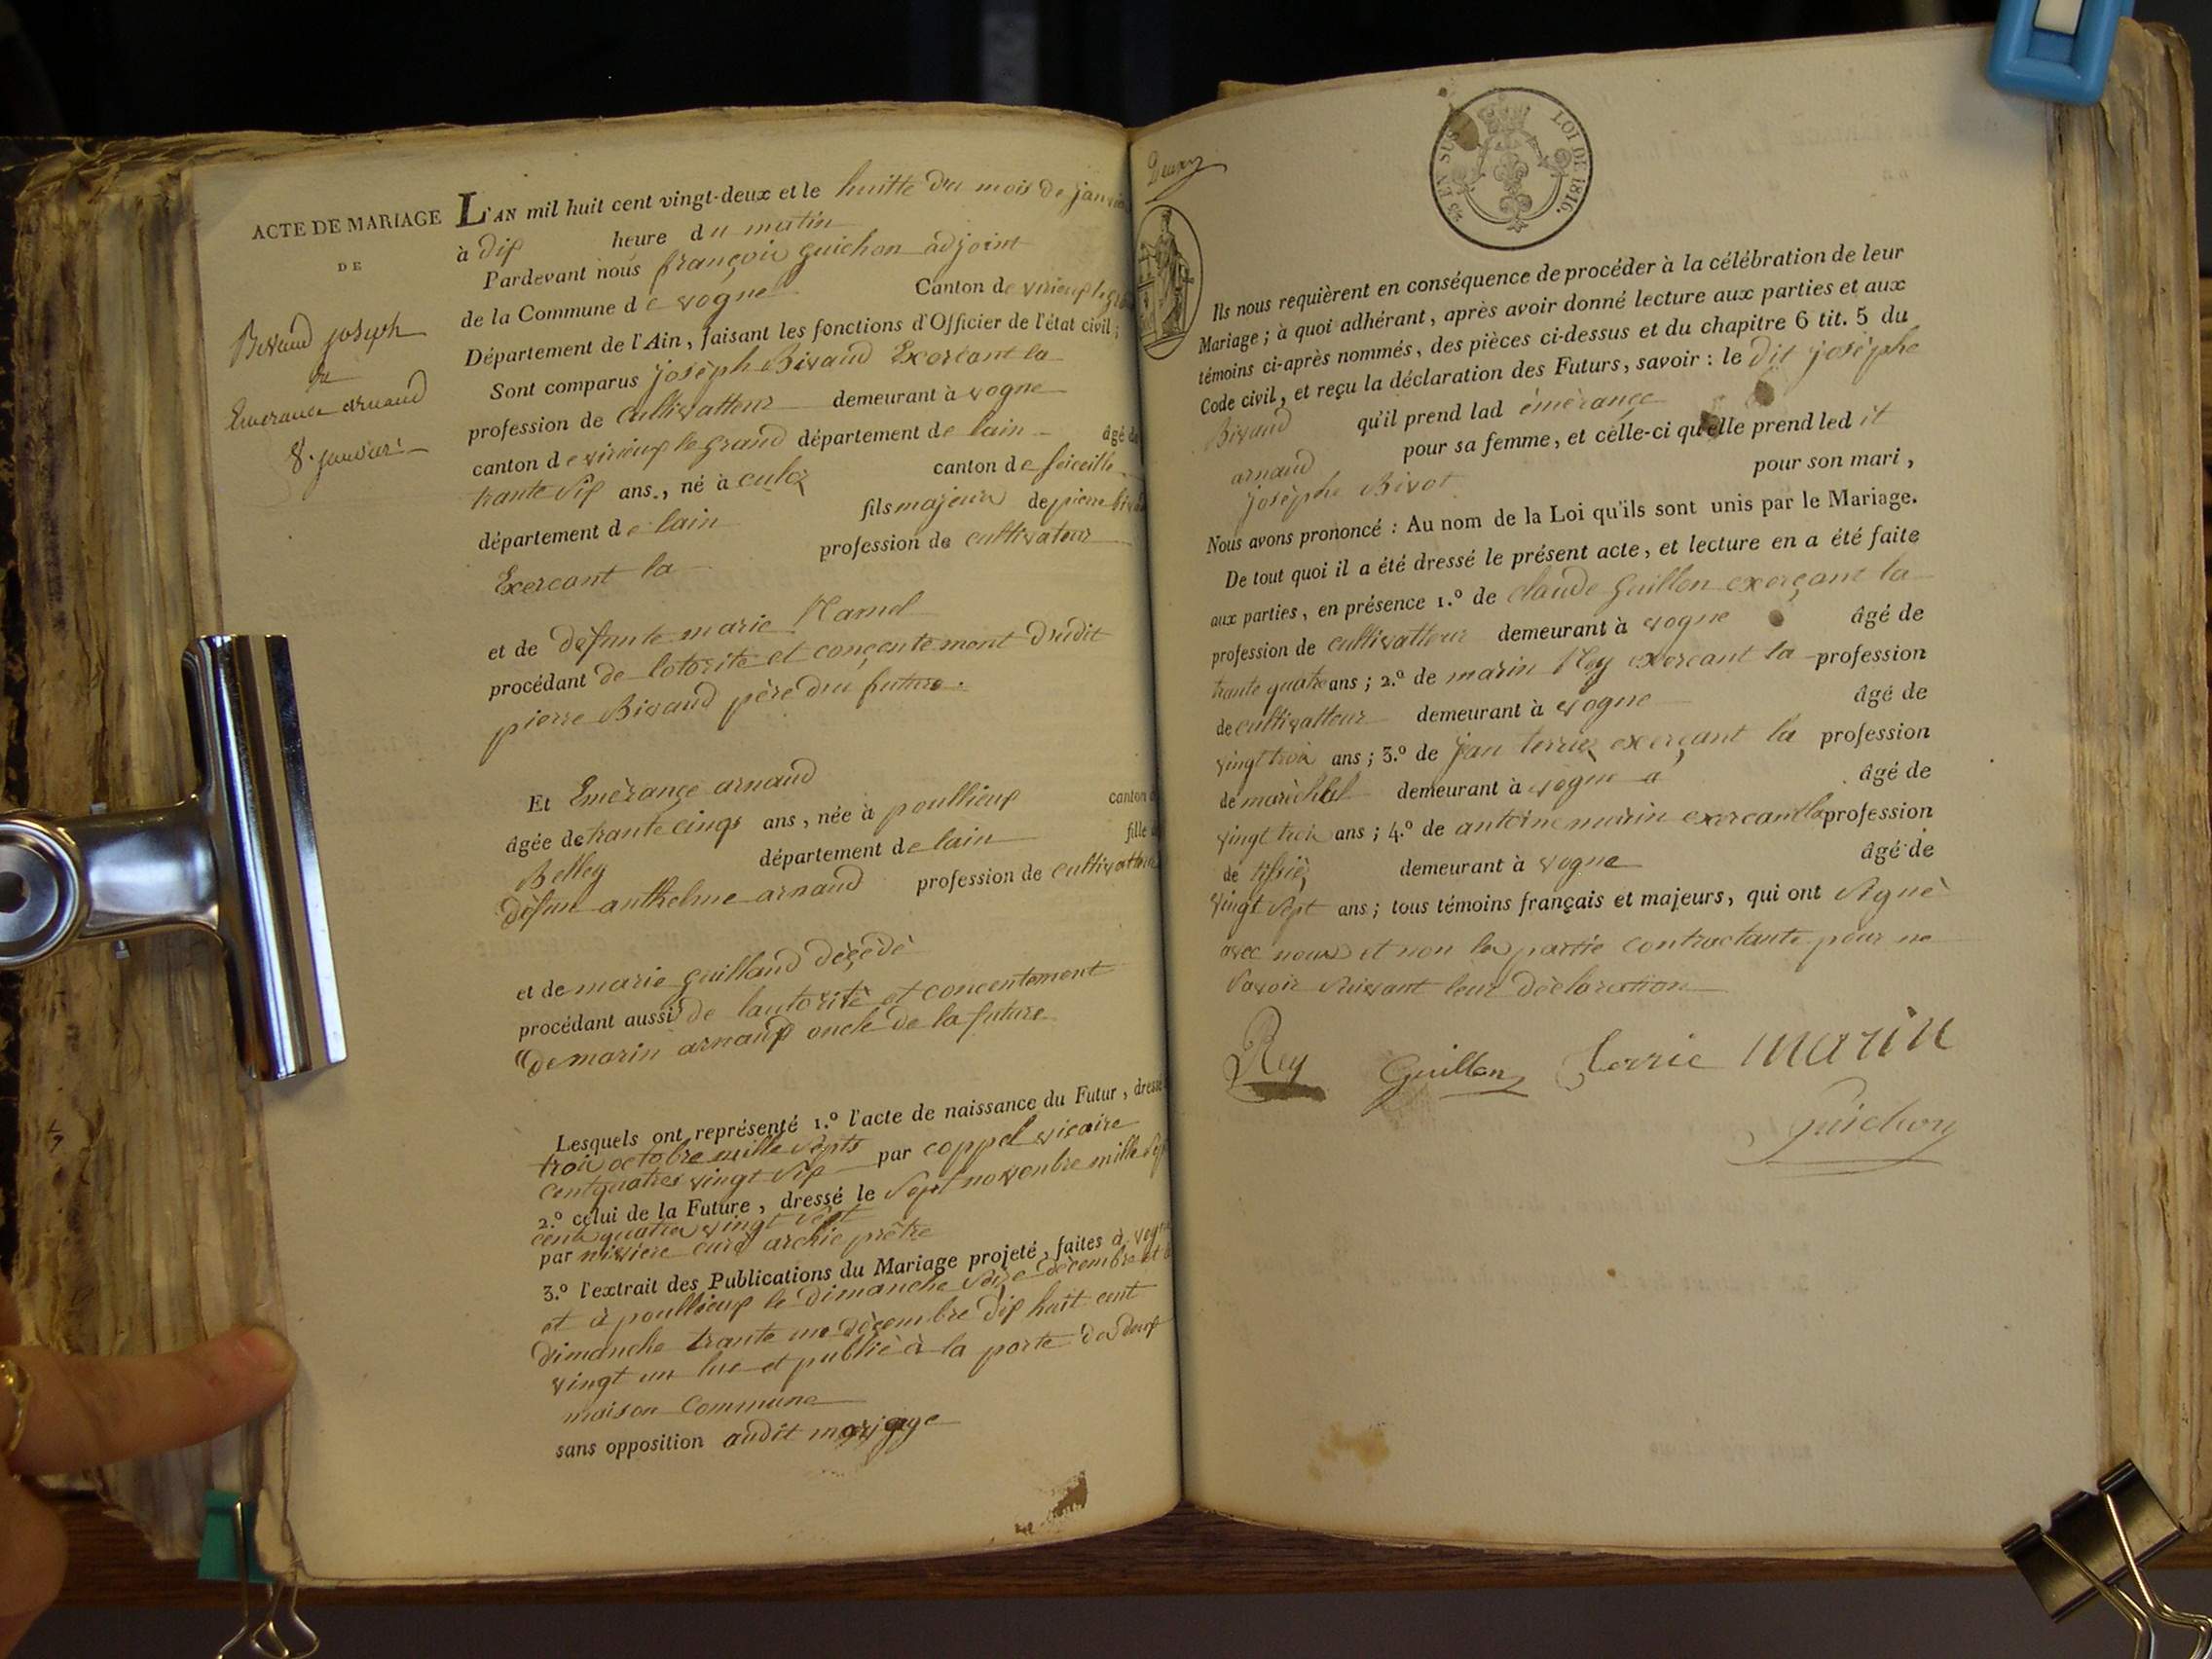 ACTE DE MARIAGE
DE
Bivaud joseph
et
Emerance arnaud
8. janvier
L'AN mil huit cent vingt-deux et le huitte du mois de janvie
à dix heure du matin
Pardevant nous françois guichon adjoint
de la Commune de vogne Canton de virieux le gr
Département de l'Ain, faisant les fonctions d'Officier de l'état civil;
Sont comparus josèph Bivaud Exercant la
profession de cultivatteur demeurant à vogne
canton de virieux le grand département de lain âgé de
trante six ans, né à culoz canton de seiceille
département de lain fils majeur de pierre biv
Exercant la profession de cultivateur
et de defunte marie
procédant de lotorité et conçentement dudit
pierre Bivaud père du future.
Et Emèrançe arnaud
âgée de trante cinqs ans, née à poullieux canton d
Belley département de lain fille d
défun anthelme arnaud profession de cultivatteur
et de marie guilland déçèdè
procédant aussi de lautorité et concentement
de marin arnaud oncle de la future
Lesquels ont représenté 1.º l'acte de naissance du Futur, dressé
troi octobre mille septs
cent quatres vingt six par coppel vicaire
2.º celui de la Future, dressé le sept novenbre mille sep
cent quatre vingt sept
par nivière curé archie prêtre
3.º l'extrait des Publications du Mariage projeté, faites à vogne
et à poullieux le dimanche seize décembre et
dimanche trante un décembre dix huit cent
vingt un lue et publié à la porte des deux
maison Commune
sans opposition audit mariage
EN SUS LOI DE 1816.
Ils nous requièrent en conséquence de procéder à la célébration de leur
Mariage; à quoi adhérant, après avoir donné lecture aux parties et aux
témoins ci-après nommés, des pièces ci-dessus et du chapitre 6 tit. 5 du
Code civil, et reçu la déclaration des Futurs, savoir: le dit josèphe
Bivaud qu'il prend lad émèrançe
arnaud pour sa femme, et celle-ci qu'elle prend led it
josèphe Bivot pour son mari,
Nous avons prononcé: Au nom de la Loi qu'ils sont unis par le Mariage.
De tout quoi il a été dressé le présent acte, et lecture en a été faite
aux parties, en présence 1.º de claude guillon exerçant la
profession de cultivatteur demeurant à vogne âgé de
trante quatre ans; 2.º de marin Rey exercant la profession
de cultivatteur demeurant à vogne âgé de
vingt troi ans; 3.º de jean terrie exerçant la profession
de marèchal demeurant à vogne a âgé de
vingt troi ans; 4.º de antoine marin exercant la profession
de tissiè demeurant à vogne âgé de
vingt sept ans; tous témoins français et majeurs, qui ont signè
avec nous et non les partie contractante pour ne
savoir suivant leur dèclaration
Rey Guillon Terrie marin
Guichon